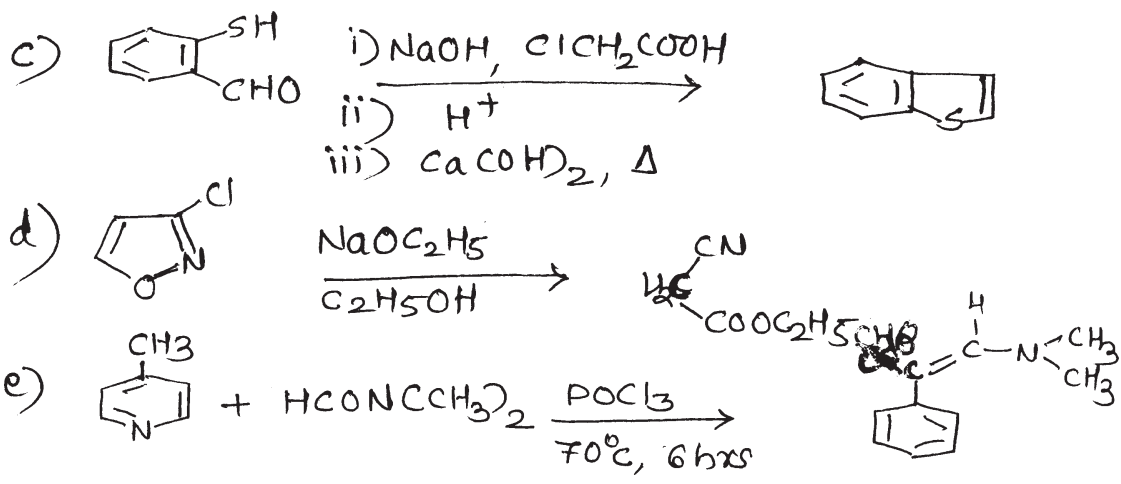 c) SH CHO i) NaOH, ClCH2COOH S
ii) H+
iii) Ca(OH)2, Δ
d) Cl N O NaOC2H5 C2H5OH CN H2C COOC2H5
e) CH3 N + HCON(CH3)2 POCl3 70°C, 6 hrs C C H N CH3 CH3